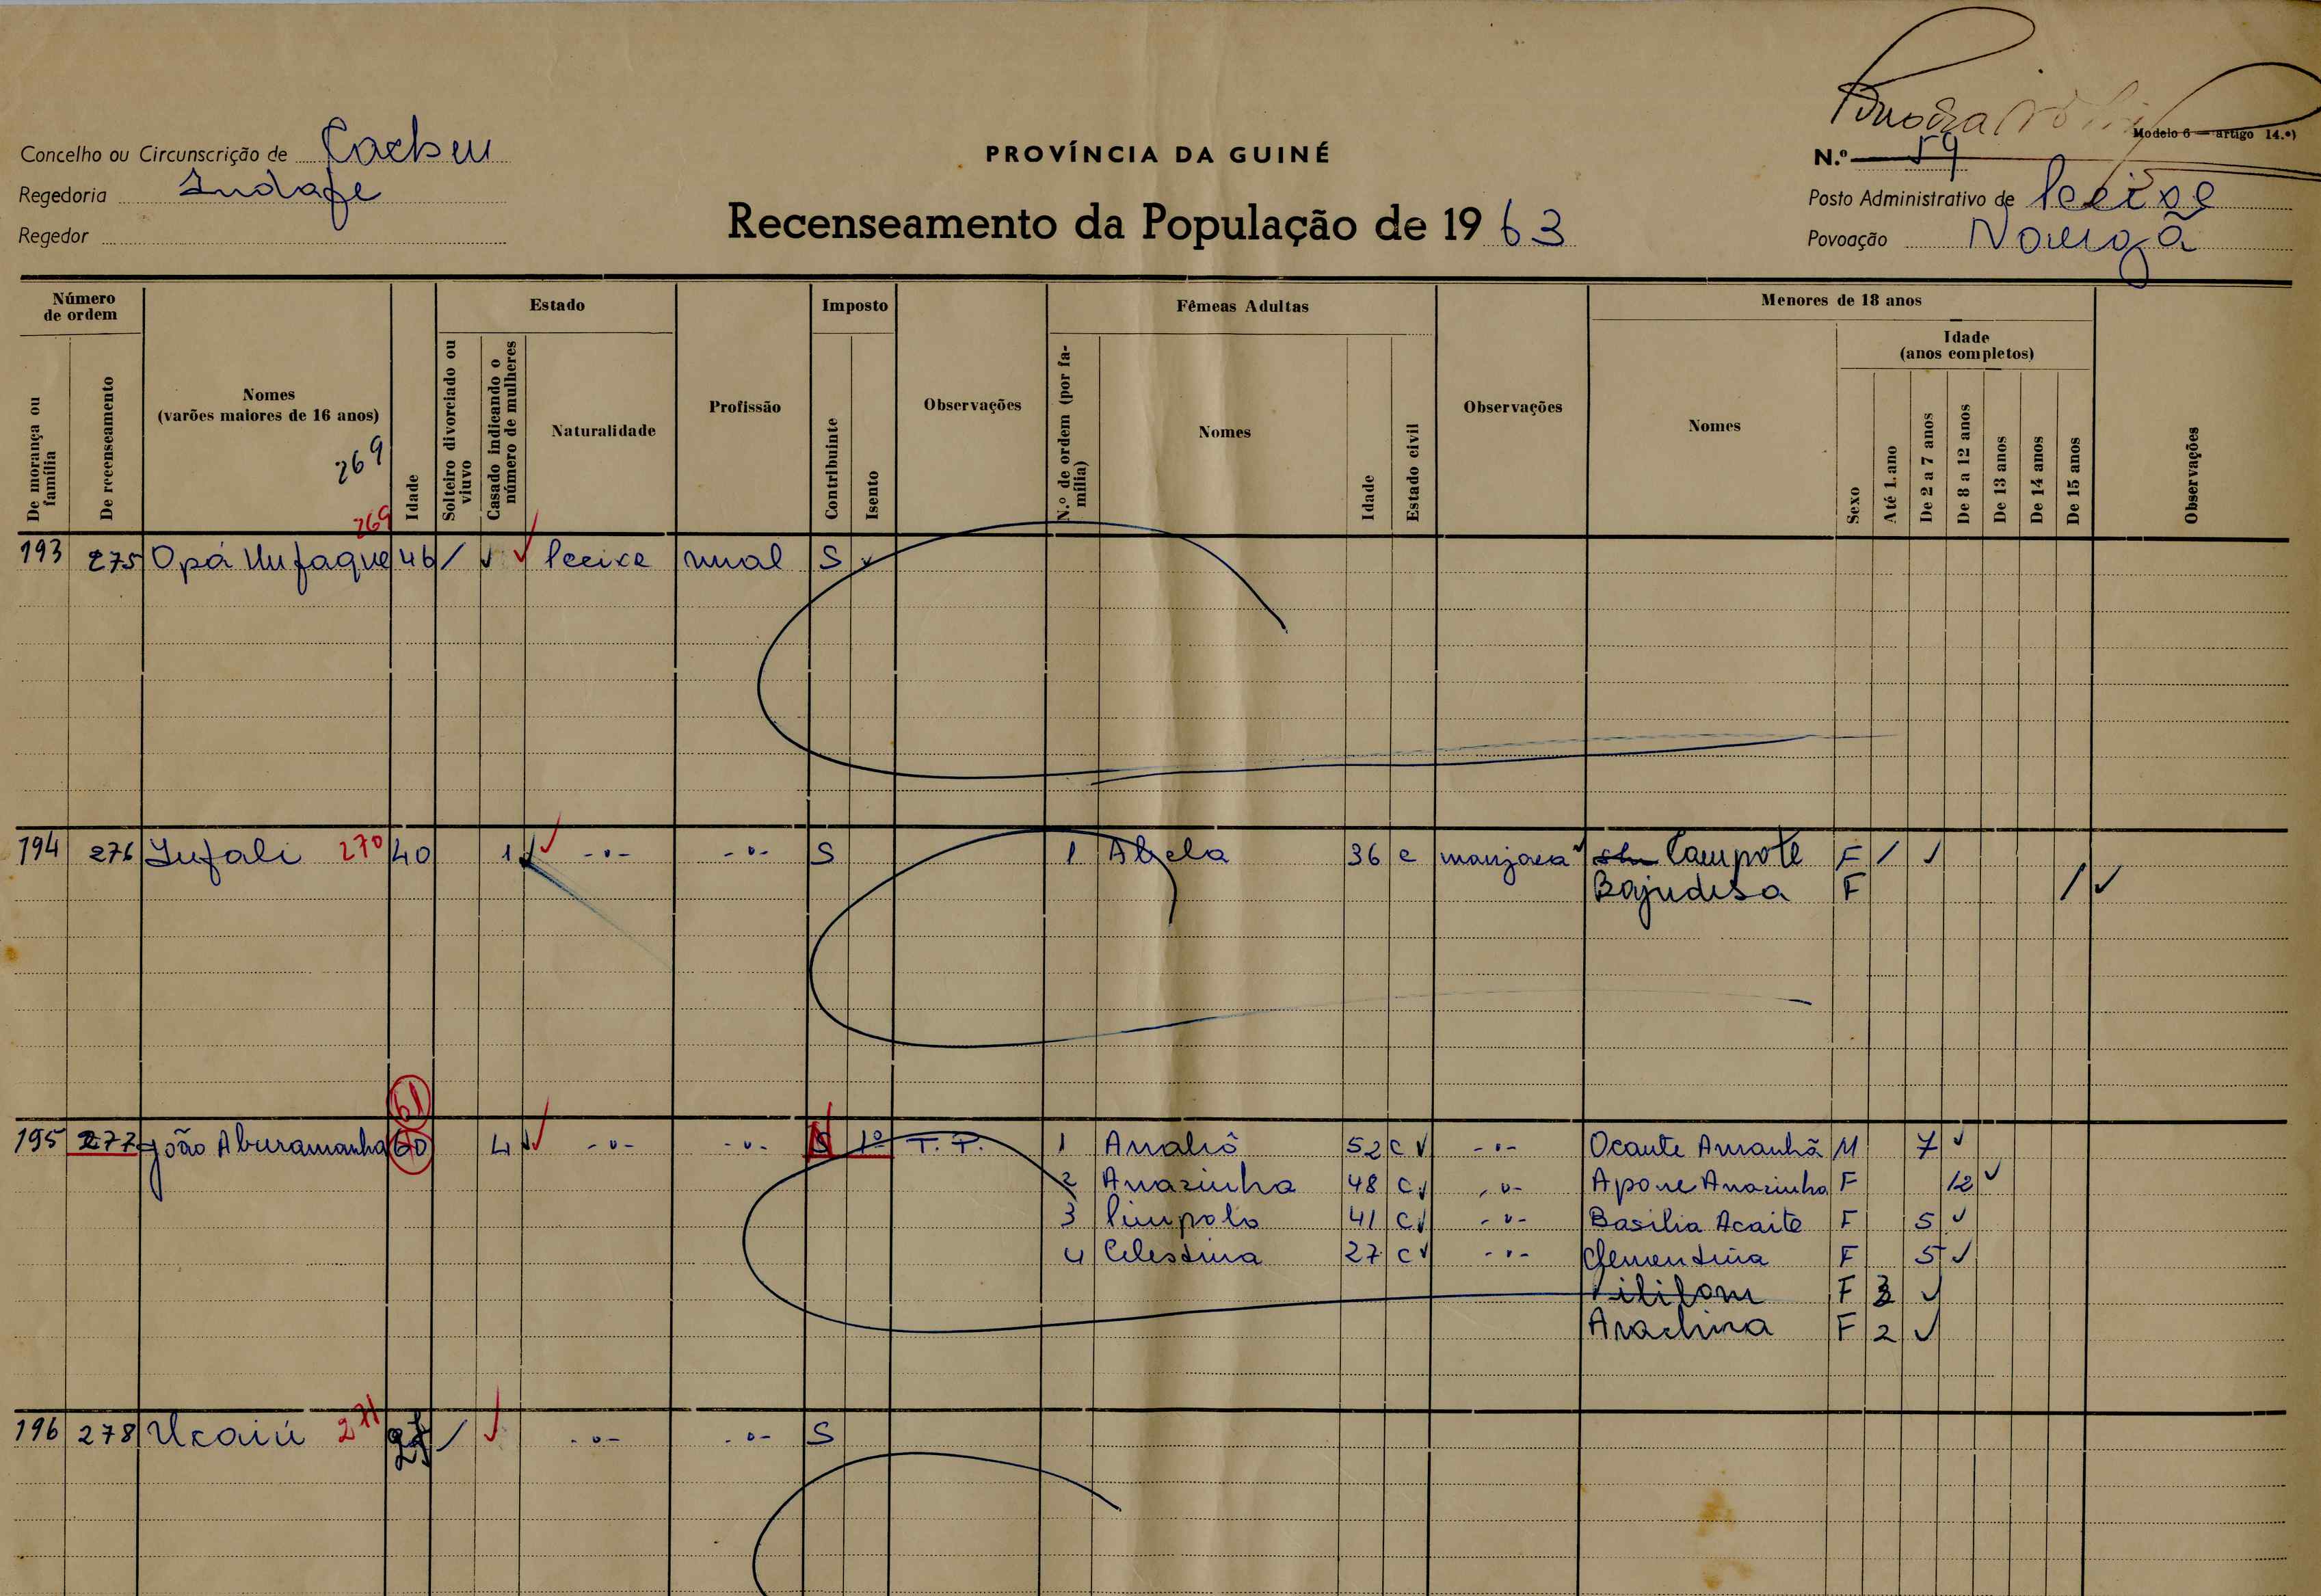 Modelo 6 — artigo 14.º)
Concelho ou Circunscrição de Cacheu
PROVÍNCIA DA GUINÉ
N.º 59
Regedoria Indafe
Recenseamento da População de 19 63
Posto Administrativo de Pecixe
Regedor
Povoação
Número de ordem
Estado
Imposto
Fêmeas Adultas
Menores de 18 anos
Idade
(anos completos)
De morança ou família
De recenseamento
Nomes
(varões maiores de 16 anos)
269
269
Idade
Solteiro divorciado ou viuvo
Casado indicando o número de mulheres
Naturalidade
Profissão
Contribuinte
Isento
Observações
N.º de ordem (por família)
Nomes
Idade
Estado civil
Observações
Nomes
Sexo
Até 1.ano
De 2 a 7 anos
De 8 a 12 anos
De 13 anos
De 14 anos
De 15 anos
Observações
193 275 Opá Unfaque 46 / ✓ ✓ Pecixe rural S ✓
194 276 Jufali 270 40 1 ✓ -"- -"- S 1 Abela 36 c manjaca Campote F / ✓
Bajudesa F / ✓
61
195 277 João Aburamanha 60 4 ✓ -"- -"- S 1º T. P. 1 52 c ✓ -"- Ocante Amanhã M 7 ✓
2 Anarinha 48 c ✓ -"- Apone Anarinha F 12 ✓
3 Pimpola 41 c ✓ -"- Basilia Acaite F 5 ✓
4 Celestina 27 c ✓ -"- Clementina F 5 ✓
F 3 ✓
Arachina F 2 ✓
196 278 Ucaiú 271 / ✓ -"- -"- S